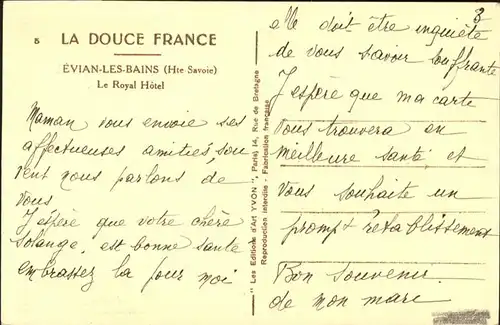 5
LA DOUCE FRANCE
ÉVIAN-LES-BAINS (Hte Savoie)
Le Royal Hôtel
Maman vous envoie ses
affectueuses amitiés, sou
vent nous parlons de
vous
J'espère que votre chère
Solange, est bonne santé
embrassez la pour moi
" Les Editions d'Art YVON ", Paris, 14, Rue de Bretagne
Reproduction interdite . Fabrication française
8
elle doit être inquiète
de vous savoir souffrante
J'espère que ma carte
vous trouvera en
meilleure santé et
vous souhaite un
prompt rétablissement
Bon souvenir
de mon mari